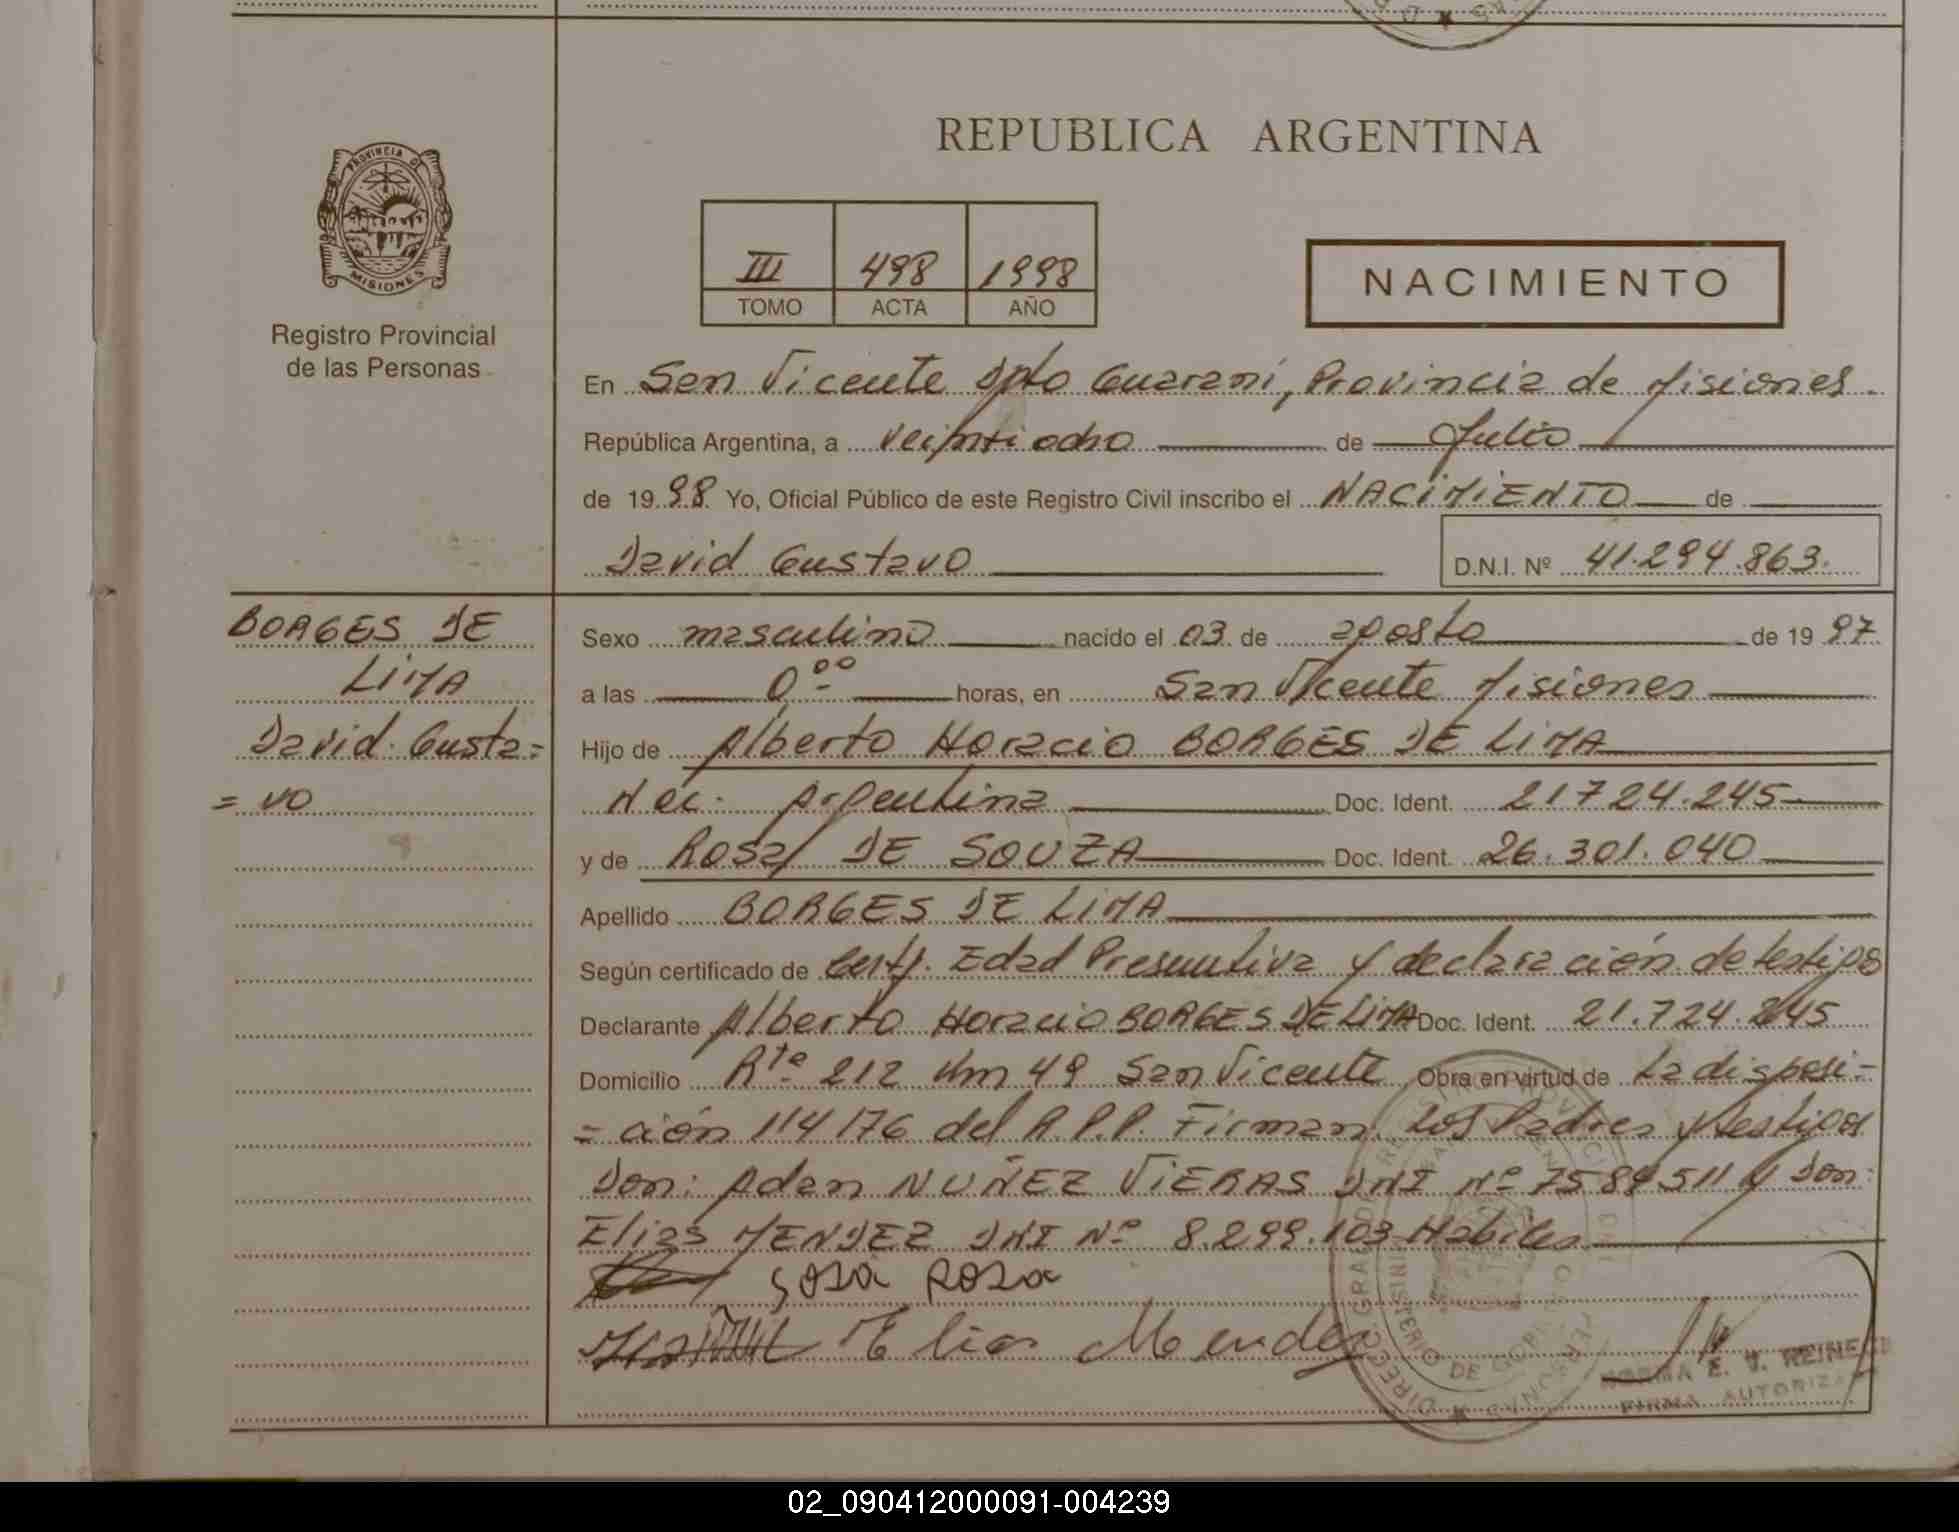 REPUBLICA ARGENTINA
PROVINCIA DE
MISIONES
Registro Provincial
de las Personas
III 498 1998
TOMO ACTA AÑO
NACIMIENTO
En San Vicente Dpto Guaraní, Provincia de Misiones
República Argentina, a veintiocho de Julio
de 1998 Yo, Oficial Público de este Registro Civil inscribo el NACIMIENTO de
David Gustavo D.N.I. Nº 41.294.863.
BORGES DE
LIMA
David Gusta=
= vo
Sexo masculino nacido el 03 de agosto de 1997
a las 0,00 horas, en San Vicente Misiones
Hijo de Alberto Horacio BORGES DE LIMA
Nac. Argentina Doc. Ident. 21724.245
y de Rosa DE SOUZA Doc. Ident. 26.301.040
Apellido BORGES DE LIMA
Según certificado de Certf. Edad Presuntiva y declaración de testigos
Declarante Alberto Horacio BORGES DE LIMA Doc. Ident. 21.724.245
Domicilio Rta 212 Km 49 San Vicente Obra en virtud de La disposi=
= ción 114/76 del R.P.P. Firman Los Padres y testigos
Don: Adan NUÑEZ VIERAS DNI Nº 7589511 y Don:
Elias MENDEZ DNI Nº 8.299.103 Habiles
SOSA ROSA
Elias Mendez
NORMA E. V.
FIRMA AUTORIZADA
02_090412000091-004239